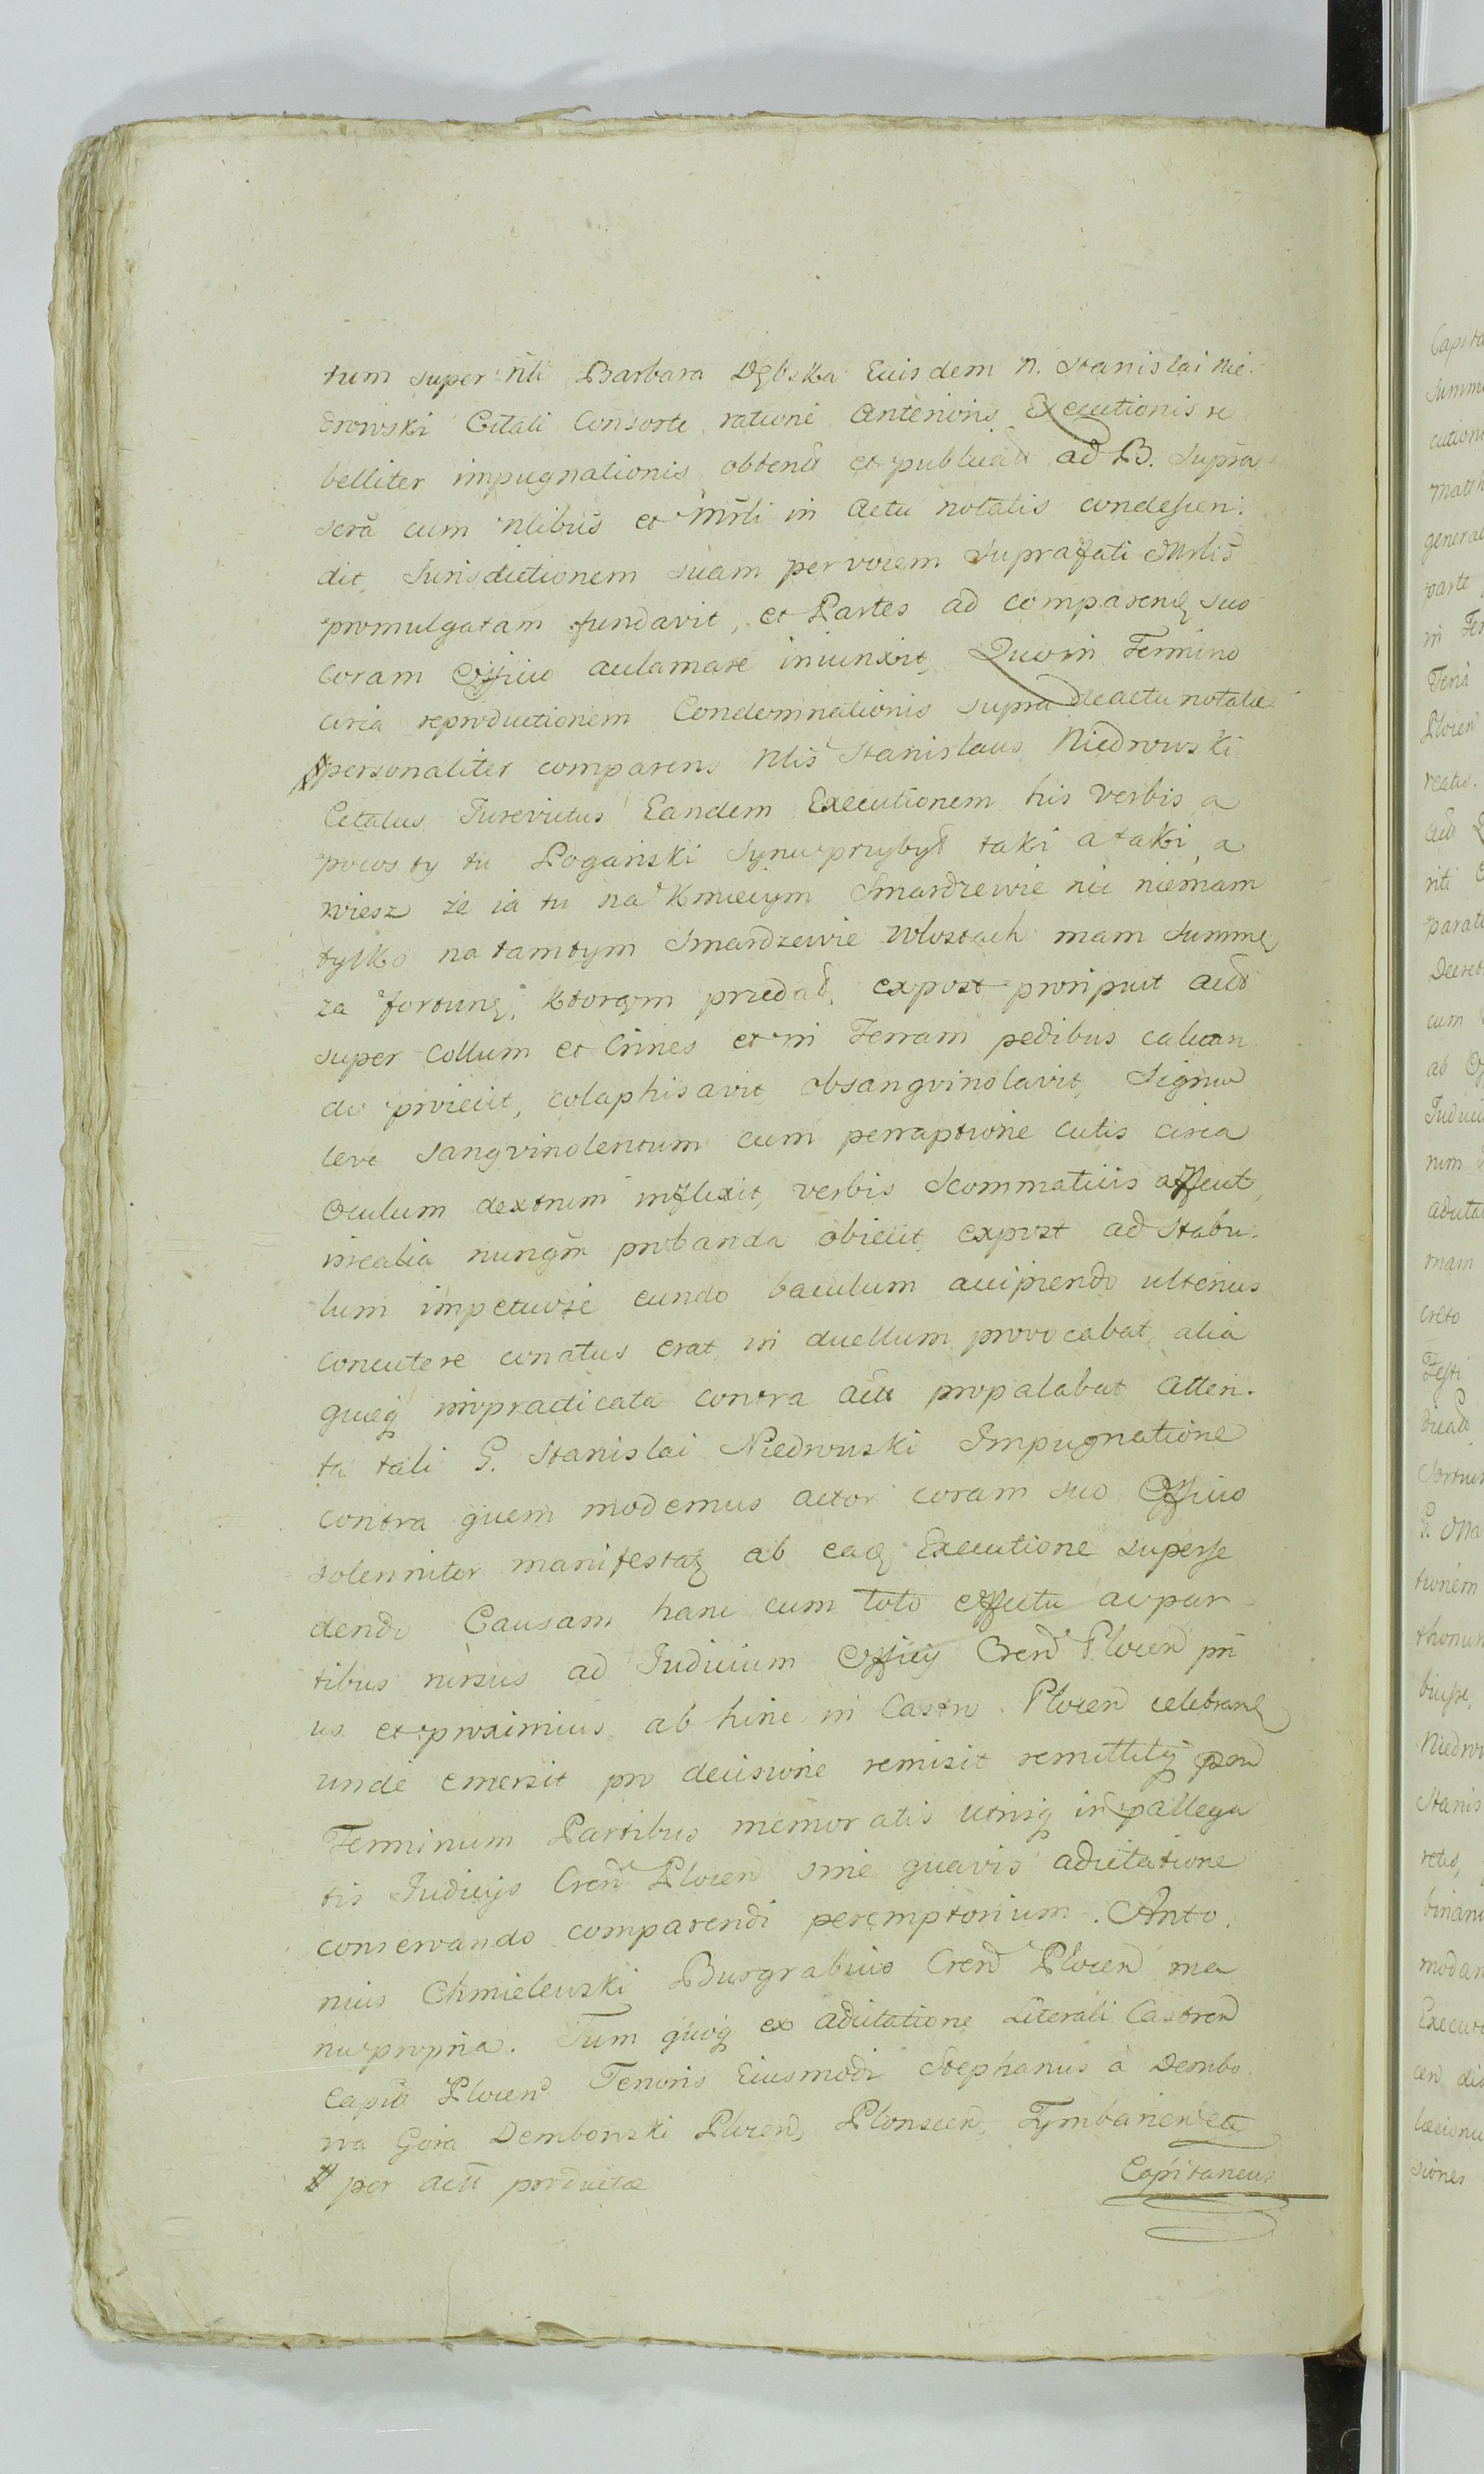 tum super Nli Barbara Dębska Eiusdem N. Stanislai Nie-
drowski Citati Consorte ratione anterioris Executionis re
belliter impugnationis obtent et publicat ad B. Supra
scra cum Nlibus et Mrli in actu notatis condescen:
dit, Jurisdictionem suam per vocem suprafati Mrlis
promulgatam fundavit, et Partes ad comparend suo
coram Officio acclamare iniunxit, Quo in Termino
circa reproductionem Condemnationis supra de actu notatæ
personaliter comparens Nlis Stanislaus Niedrowski
Citatus Jurevictus Eandem Executionem his verbis, a
pocos ty tu Poganski Synu przybył taki a taki, a
wiesz że ia tu na Kmiecym Smardzewie nic niemam
tylko na tamtym Smardzewie Włostach mam Summę
za fortunę, ktorąm przedał, expost proripuit act
super Collum et Crines et in Terram pedibus calcan
do proiecit, colaphisavit, obsangvinolavit, Signu
leve sangvinolentum cum perraptione cutis circa
Oculum dextrum inflixit, verbis Scommaticis affecit,
irrealia nunqm probanda obiecit, expost ad stabu-
lum impetuose eundo baculum accipiendo ulterius
Concutere conatus erat, in duellum provocabat, alia
quæq impracticata contra actu propalabat Atten-
ta tali G. Stanislai Niedrowski Impugnatione
contra quem modernus actor coram suo Officio
solenniter manifestat ab ead Executione superse
dendo Causam hanc cum toto effectu ac par
tibus rursus ad Judicium Officij Cren Plocen pri
us et proximius ab hinc in Castro Plocen celebrand
unde emersit pro decisione remisit remittitq pend
Terminum Partibus memoratis utrisq in pallega
tis Judicijs Cren Plocen sine quavis adcitatione
conservando comparendi peremptorium. Anto.
nius Chmielewski Burgrabius Cren Plocen ma
nu propria. Tum quoq ex adcitatione Literali Castren
Capia Plocen Tenoris Eiusmodi Stephanus a Dembo
wa Gora Dembowski Plocen, Plonscen, Tymbarien etc
Capitaneus
# per actu productæ